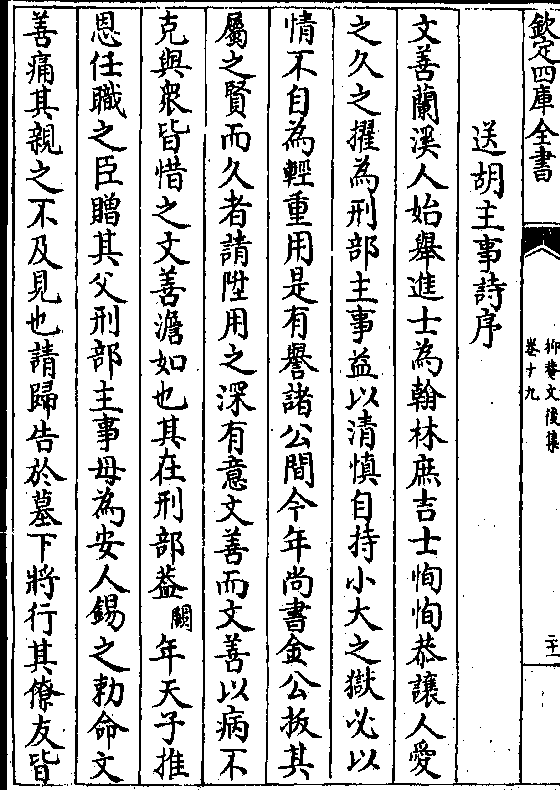 欽定四庫全書
抑菴文後集
卷十九
二十一
送胡主事詩序
文善蘭溪人始舉進士為翰林庶吉士恂恂恭讓人愛
之久之擢為刑部主事益以清慎自持小大之獄必以
情不自為輕重用是有譽諸公間今年尚書金公扳其
屬之賢而久者請陞用之深有意文善而文善以病不
克與衆皆惜之文善澹如也其在刑部葢闕年天子推
恩任職之臣贈其父刑部主事母為安人錫之勅命文
善痛其親之不及見也請歸告於墓下將行其僚友皆